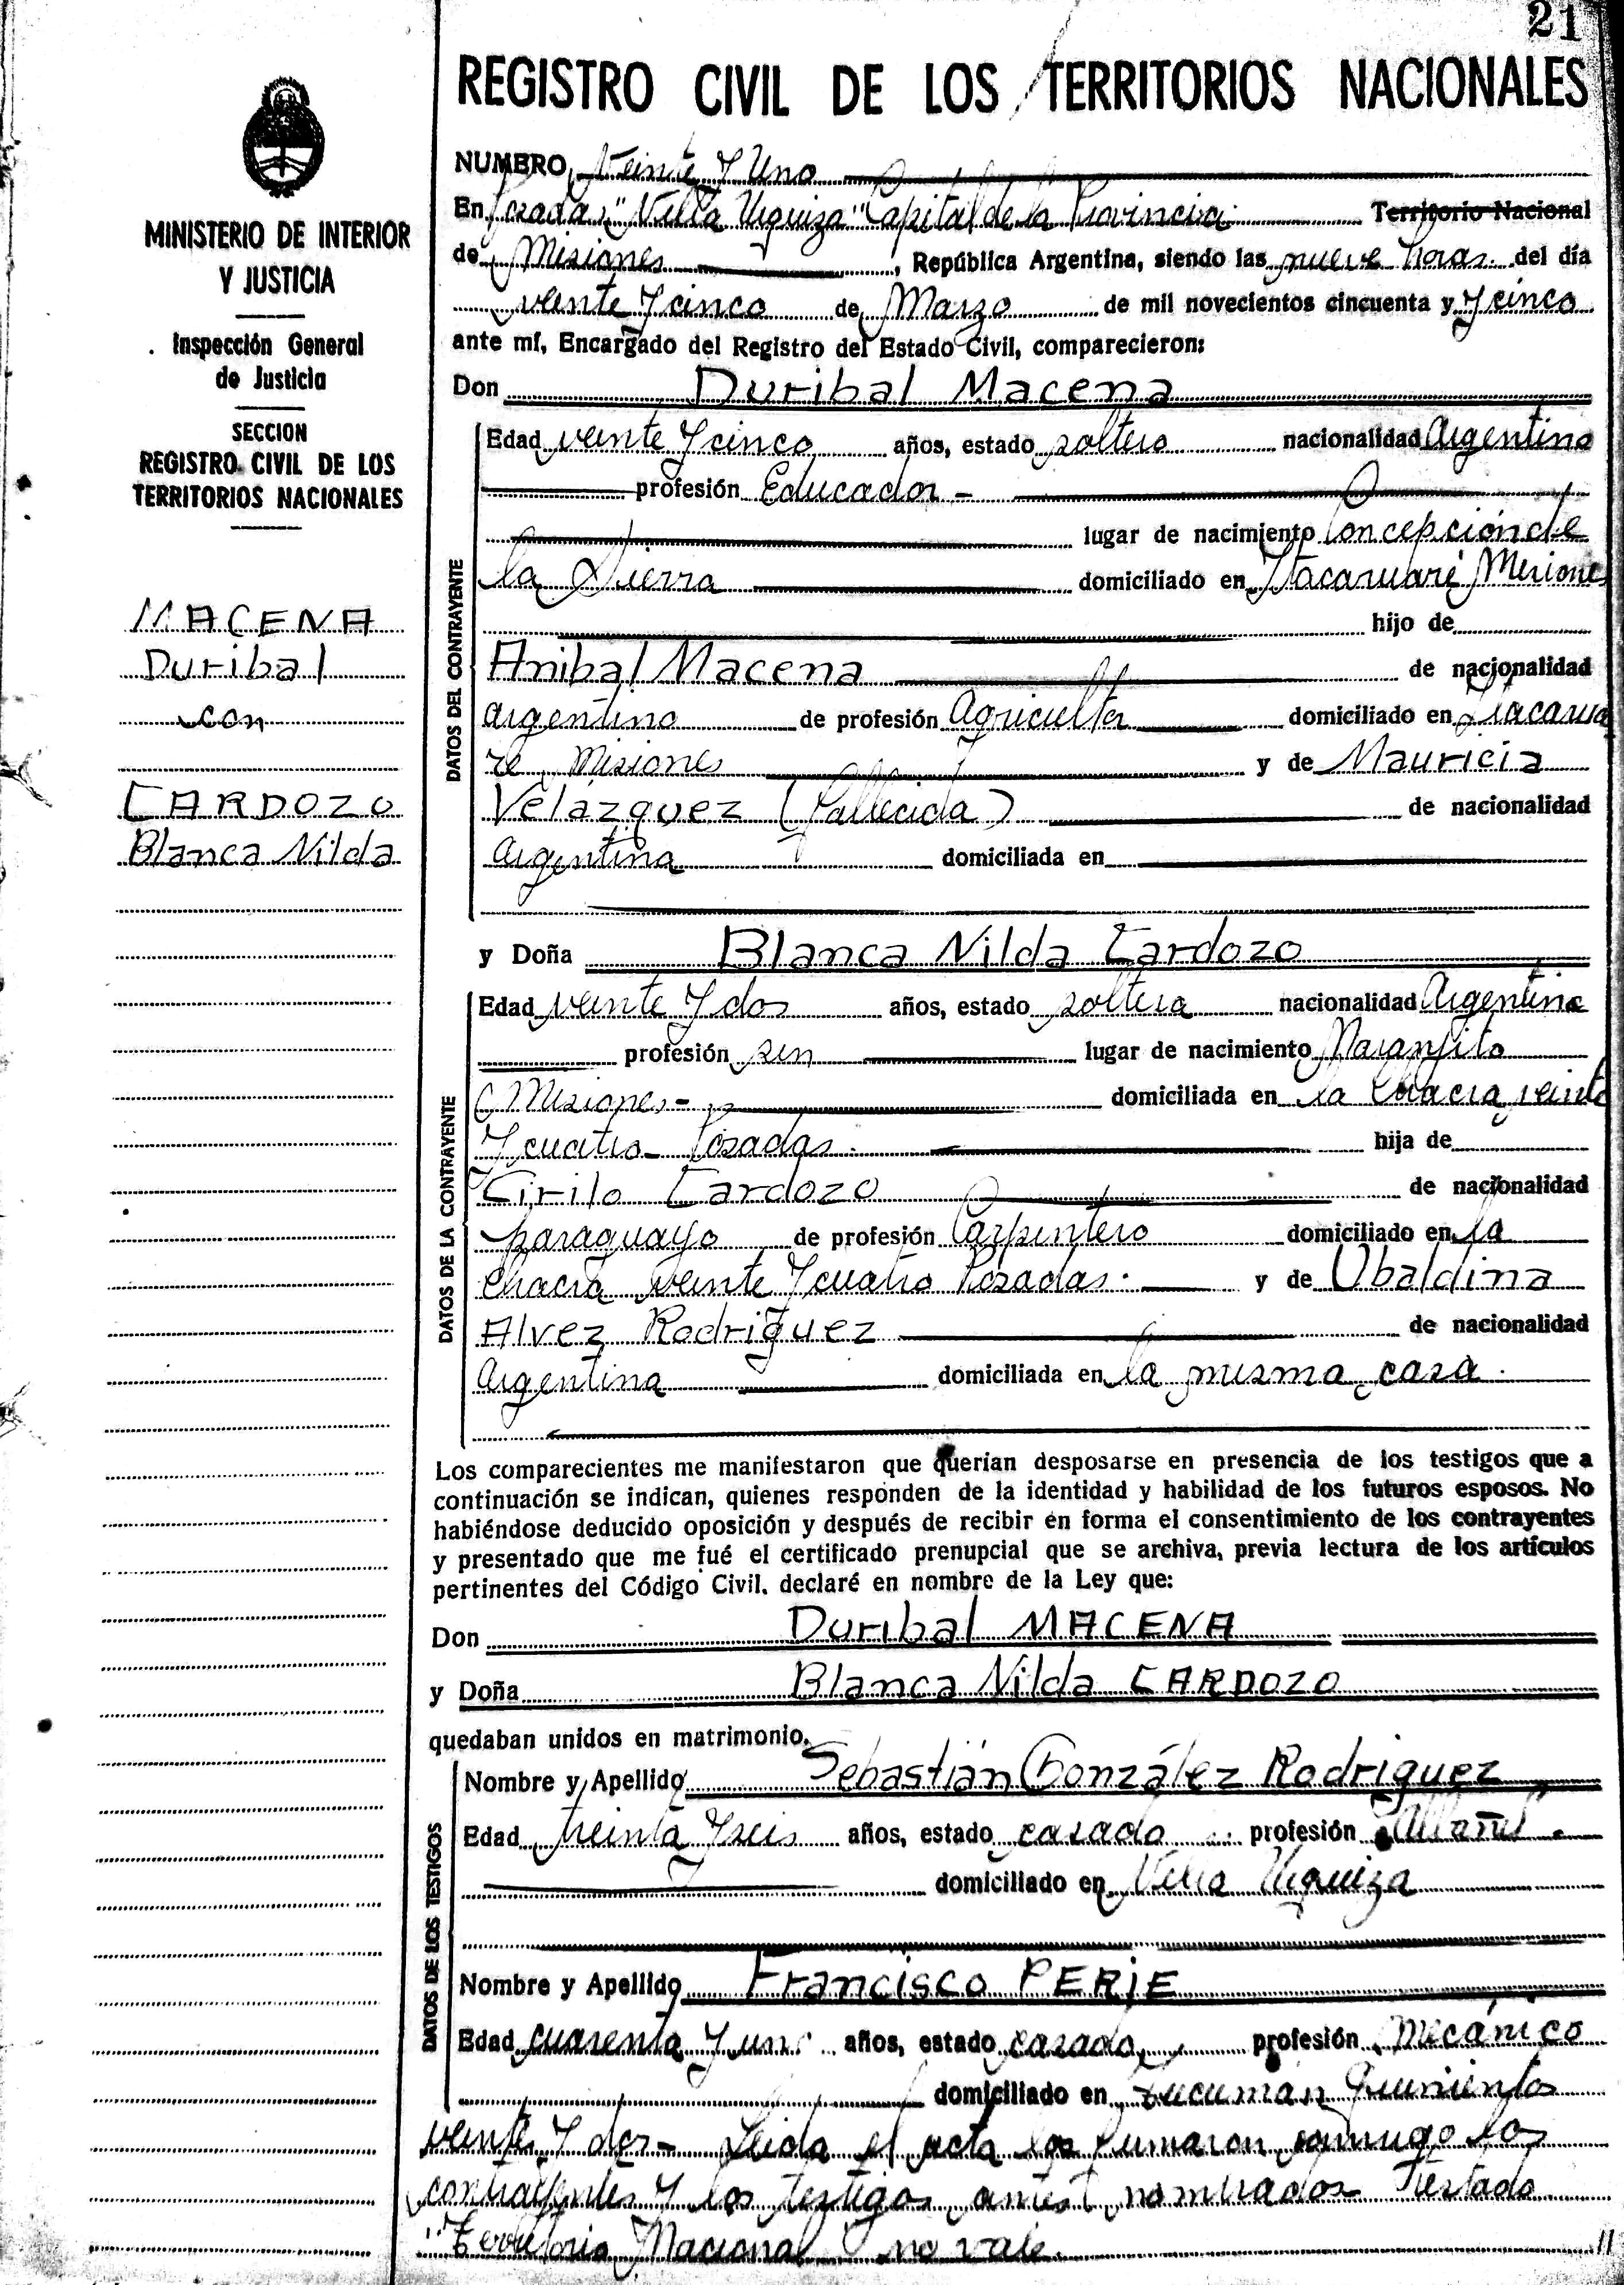 21
REGISTRO CIVIL DE LOS TERRITORIOS NACIONALES
MINISTERIO DE INTERIOR
Y JUSTICIA
Inspección General
de Justicia
SECCION
REGISTRO CIVIL DE LOS
TERRITORIOS NACIONALES
MACENA
Duribal
con
CARDOZO
Blanca Nilda
NUMERO Veinte y Uno
En Posadas "Villa Urquiza" Capital de la Provincia Territorio Nacional
de Misiones, República Argentina, siendo las nueve horas del día
veinte y cinco de Marzo de mil novecientos cincuenta y y cinco
ante mí, Encargado del Registro del Estado Civil, comparecieron:
Don Duribal Macena
DATOS DEL CONTRAYENTE
Edad veinte y cinco años, estado soltero nacionalidad Argentino
profesión Educador -
lugar de nacimiento Concepción de
la Sierra domiciliado en Itacaruaré Misiones
hijo de
Anibal Macena de nacionalidad
argentino de profesión Agricultor domiciliado en Itacarua
ré Misiones y de Mauricia
Velázquez (fallecida) de nacionalidad
Argentina domiciliada en
y Doña Blanca Nilda Cardozo
DATOS DE LA CONTRAYENTE
Edad veinte y dos años, estado soltera nacionalidad Argentina
profesión sin lugar de nacimiento Naranjito
Misiones - domiciliada en la Chacra veinte
y cuatro Posadas. hija de
Cirilo Cardozo de nacionalidad
paraguayo de profesión Carpintero domiciliado en la
Chacra veinte y cuatro Posadas. y de Ubaldina
Alvez Rodriguez de nacionalidad
Argentina domiciliada en la misma casa.
Los comparecientes me manifestaron que querían desposarse en presencia de los testigos que a
continuación se indican, quienes responden de la identidad y habilidad de los futuros esposos. No
habiéndose deducido oposición y después de recibir en forma el consentimiento de los contrayentes
y presentado que me fué el certificado prenupcial que se archiva, previa lectura de los artículos
pertinentes del Código Civil, declaré en nombre de la Ley que:
Don Duribal MACENA
y Doña Blanca Nilda CARDOZO
quedaban unidos en matrimonio.
DATOS DE LOS TESTIGOS
Nombre y Apellido Sebastián González Rodriguez
Edad treinta y seis años, estado casado profesión Albañil.
domiciliado en Villa Urquiza
Nombre y Apellido Francisco PERIE
Edad cuarenta y uno años, estado casado profesión Mecánico
domiciliado en Tucumán Quinientos
veinte y dos - Leida el acta la firmaron conmigo los
contrayentes y los testigos antes nominados Testado
"Territorio Nacional" no vale.